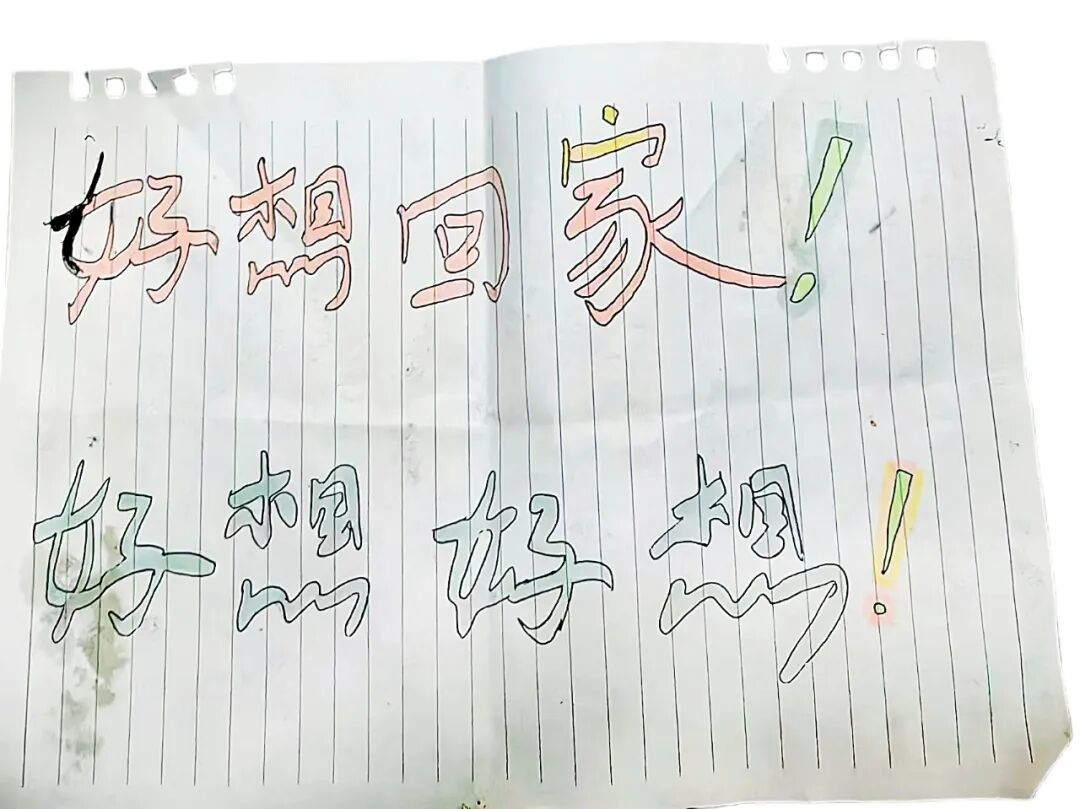 好想回家!
好想好想!